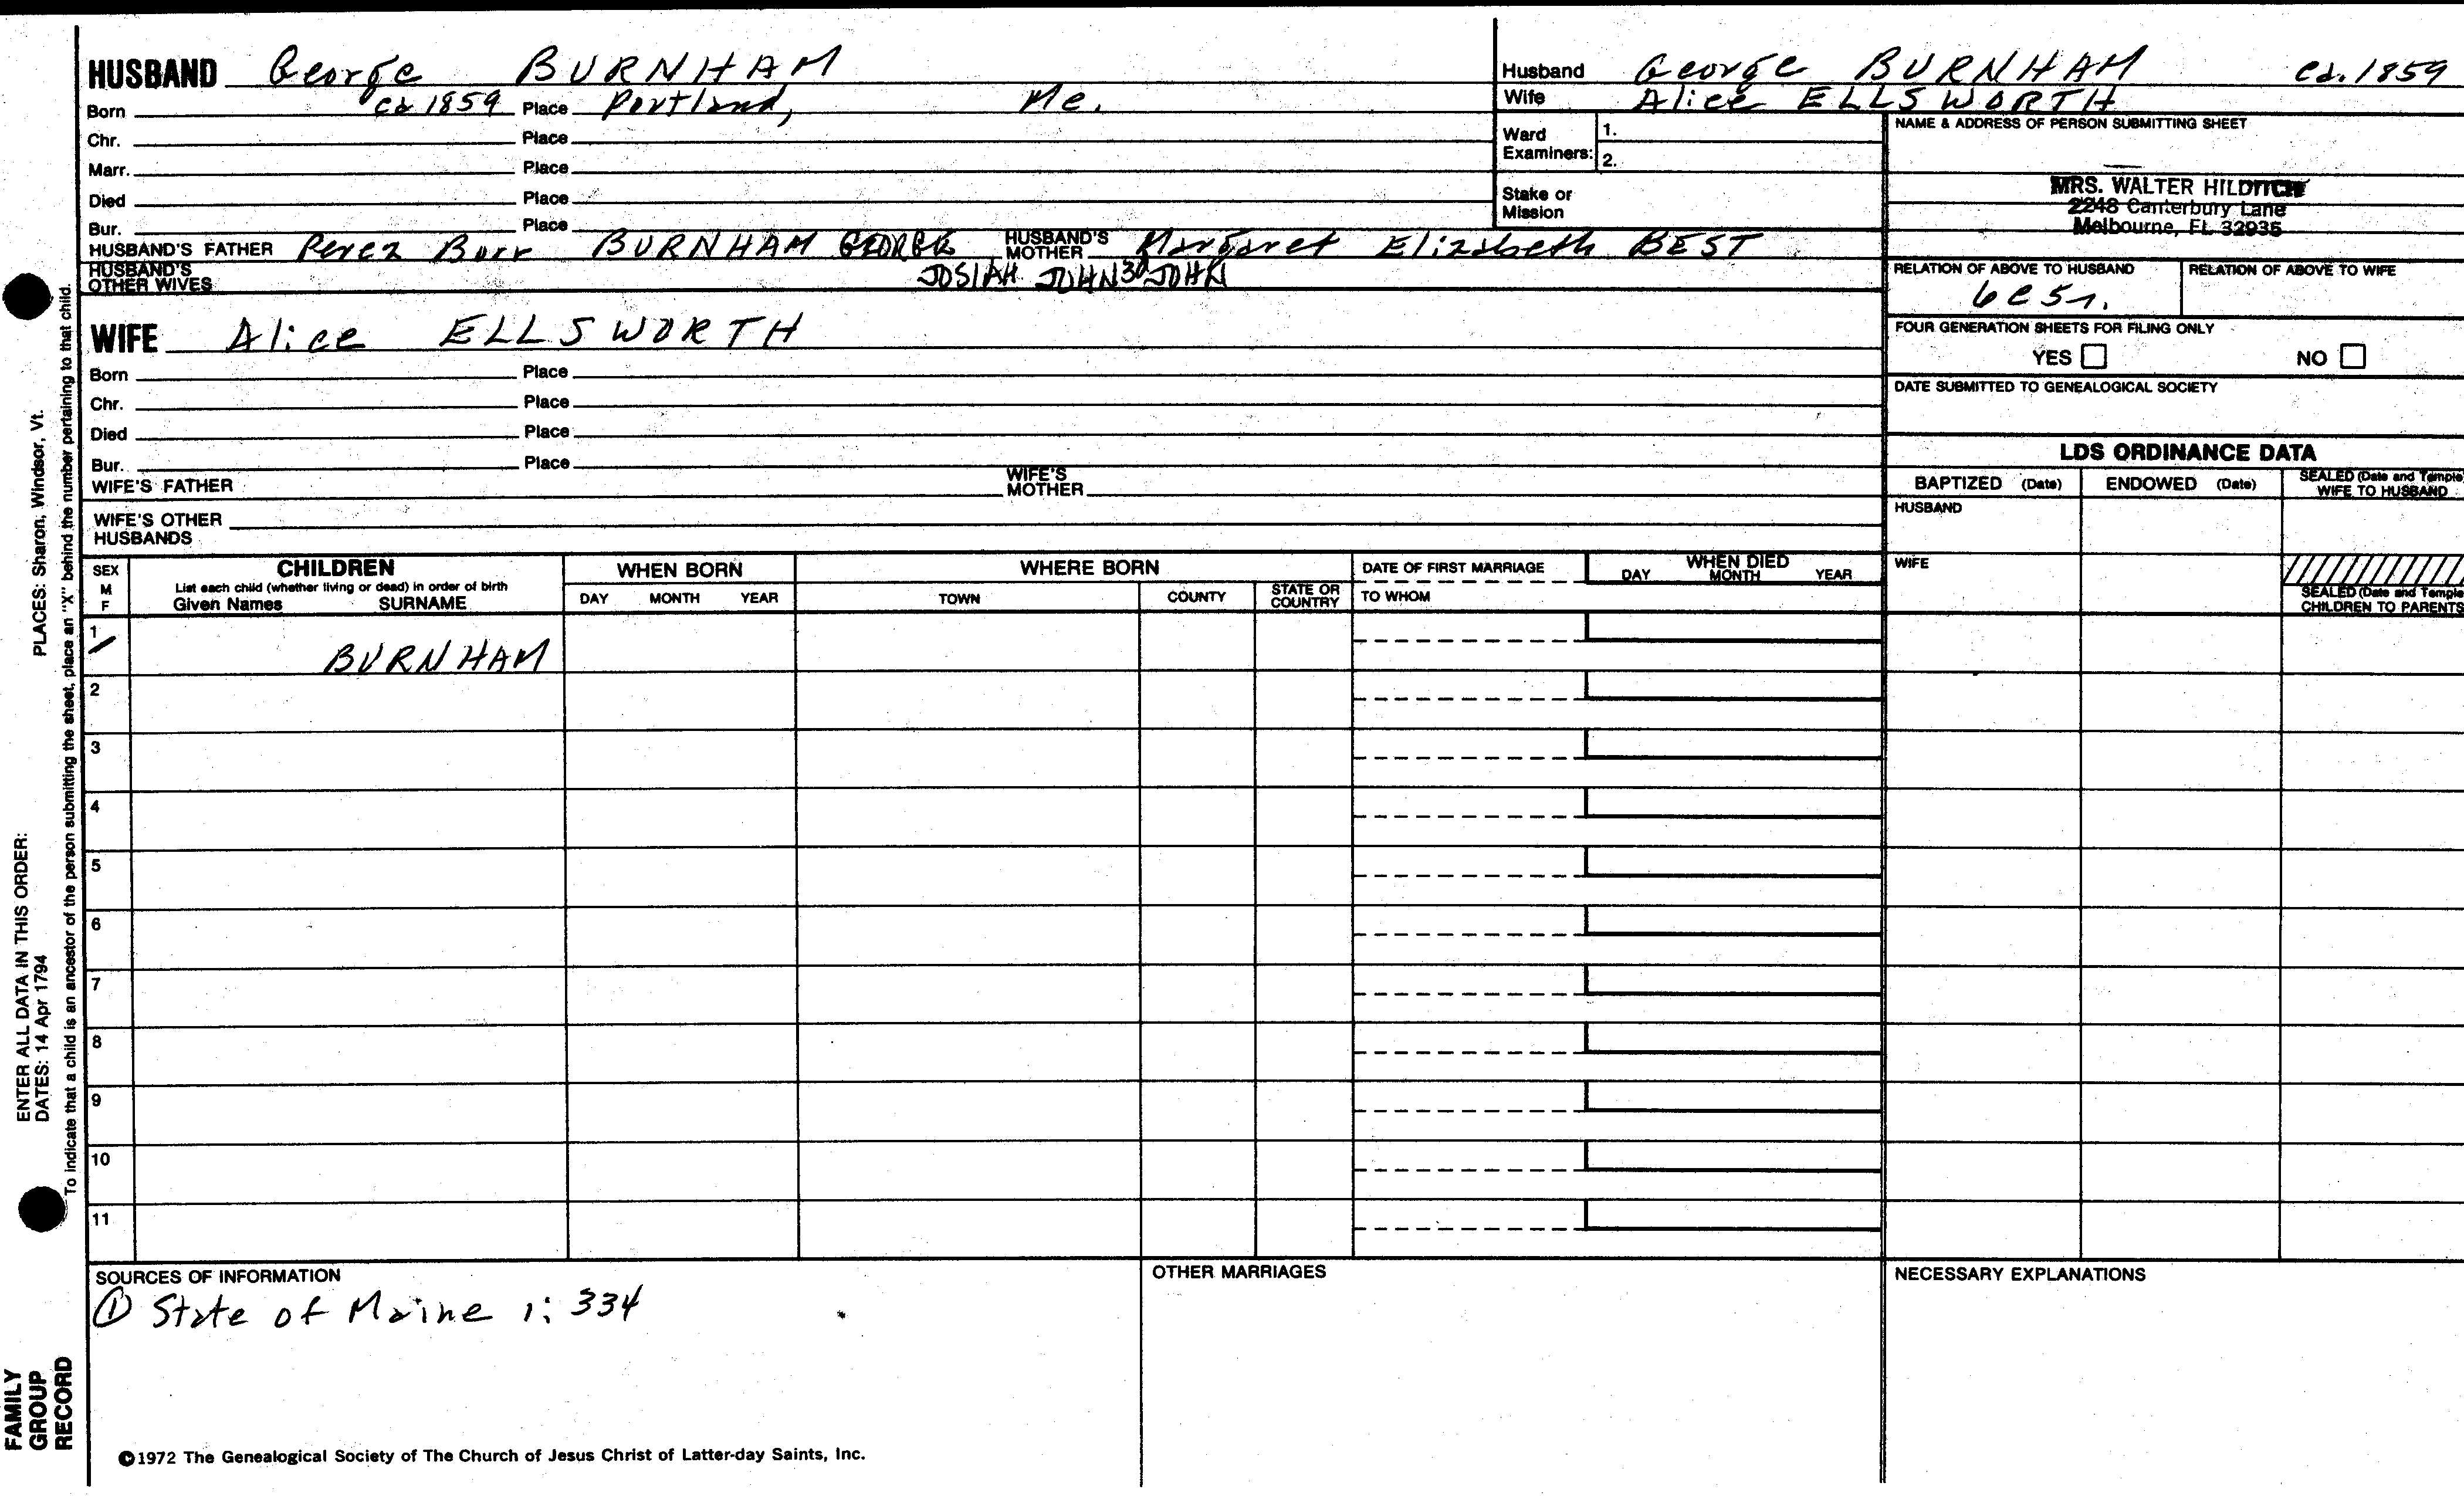 HUSBAND George BURNHAM
Born ca 1859 Place Portland, Me.
Chr. Place
Marr. Place
Died Place
Bur. Place
HUSBAND'S FATHER Perez Burr BURNHAM GEORGE HUSBAND'S MOTHER Margaret Elizabeth BEST
HUSBAND'S OTHER WIVES JOSIAH JOHN 3d JOHN
WIFE Alice ELLSWORTH
Born Place
Chr. Place
Died Place
Bur. Place
WIFE'S FATHER WIFE'S MOTHER
WIFE'S OTHER HUSBANDS
Husband George BURNHAM ca. 1859
Wife Alice ELLSWORTH
Ward Examiners: 1.
2.
Stake or Mission
NAME & ADDRESS OF PERSON SUBMITTING SHEET
MRS. WALTER HILDITCH
2248 Canterbury Lane
Melbourne, FL 32935
RELATION OF ABOVE TO HUSBAND RELATION OF ABOVE TO WIFE
FOUR GENERATION SHEETS FOR FILING ONLY
YES NO
DATE SUBMITTED TO GENEALOGICAL SOCIETY
LDS ORDINANCE DATA
BAPTIZED (Date) ENDOWED (Date) SEALED (Date and Temple) WIFE TO HUSBAND
HUSBAND
WIFE
SEALED (Date and Temple) CHILDREN TO PARENTS
SEX M F CHILDREN WHEN BORN WHERE BORN DATE OF FIRST MARRIAGE WHEN DIED
List each child (whether living or dead) in order of birth
Given Names SURNAME DAY MONTH YEAR TOWN COUNTY STATE OR COUNTRY TO WHOM DAY MONTH YEAR
1 BURNHAM
2
3
4
5
6
7
8
9
10
11
SOURCES OF INFORMATION
① State of Maine 1: 334
OTHER MARRIAGES
NECESSARY EXPLANATIONS
©1972 The Genealogical Society of The Church of Jesus Christ of Latter-day Saints, Inc.
FAMILY GROUP RECORD
ENTER ALL DATA IN THIS ORDER:
DATES: 14 Apr 1794 PLACES: Sharon, Windsor, Vt.
To indicate that a child is an ancestor of the person submitting the sheet, place an "X" behind the number pertaining to that child.